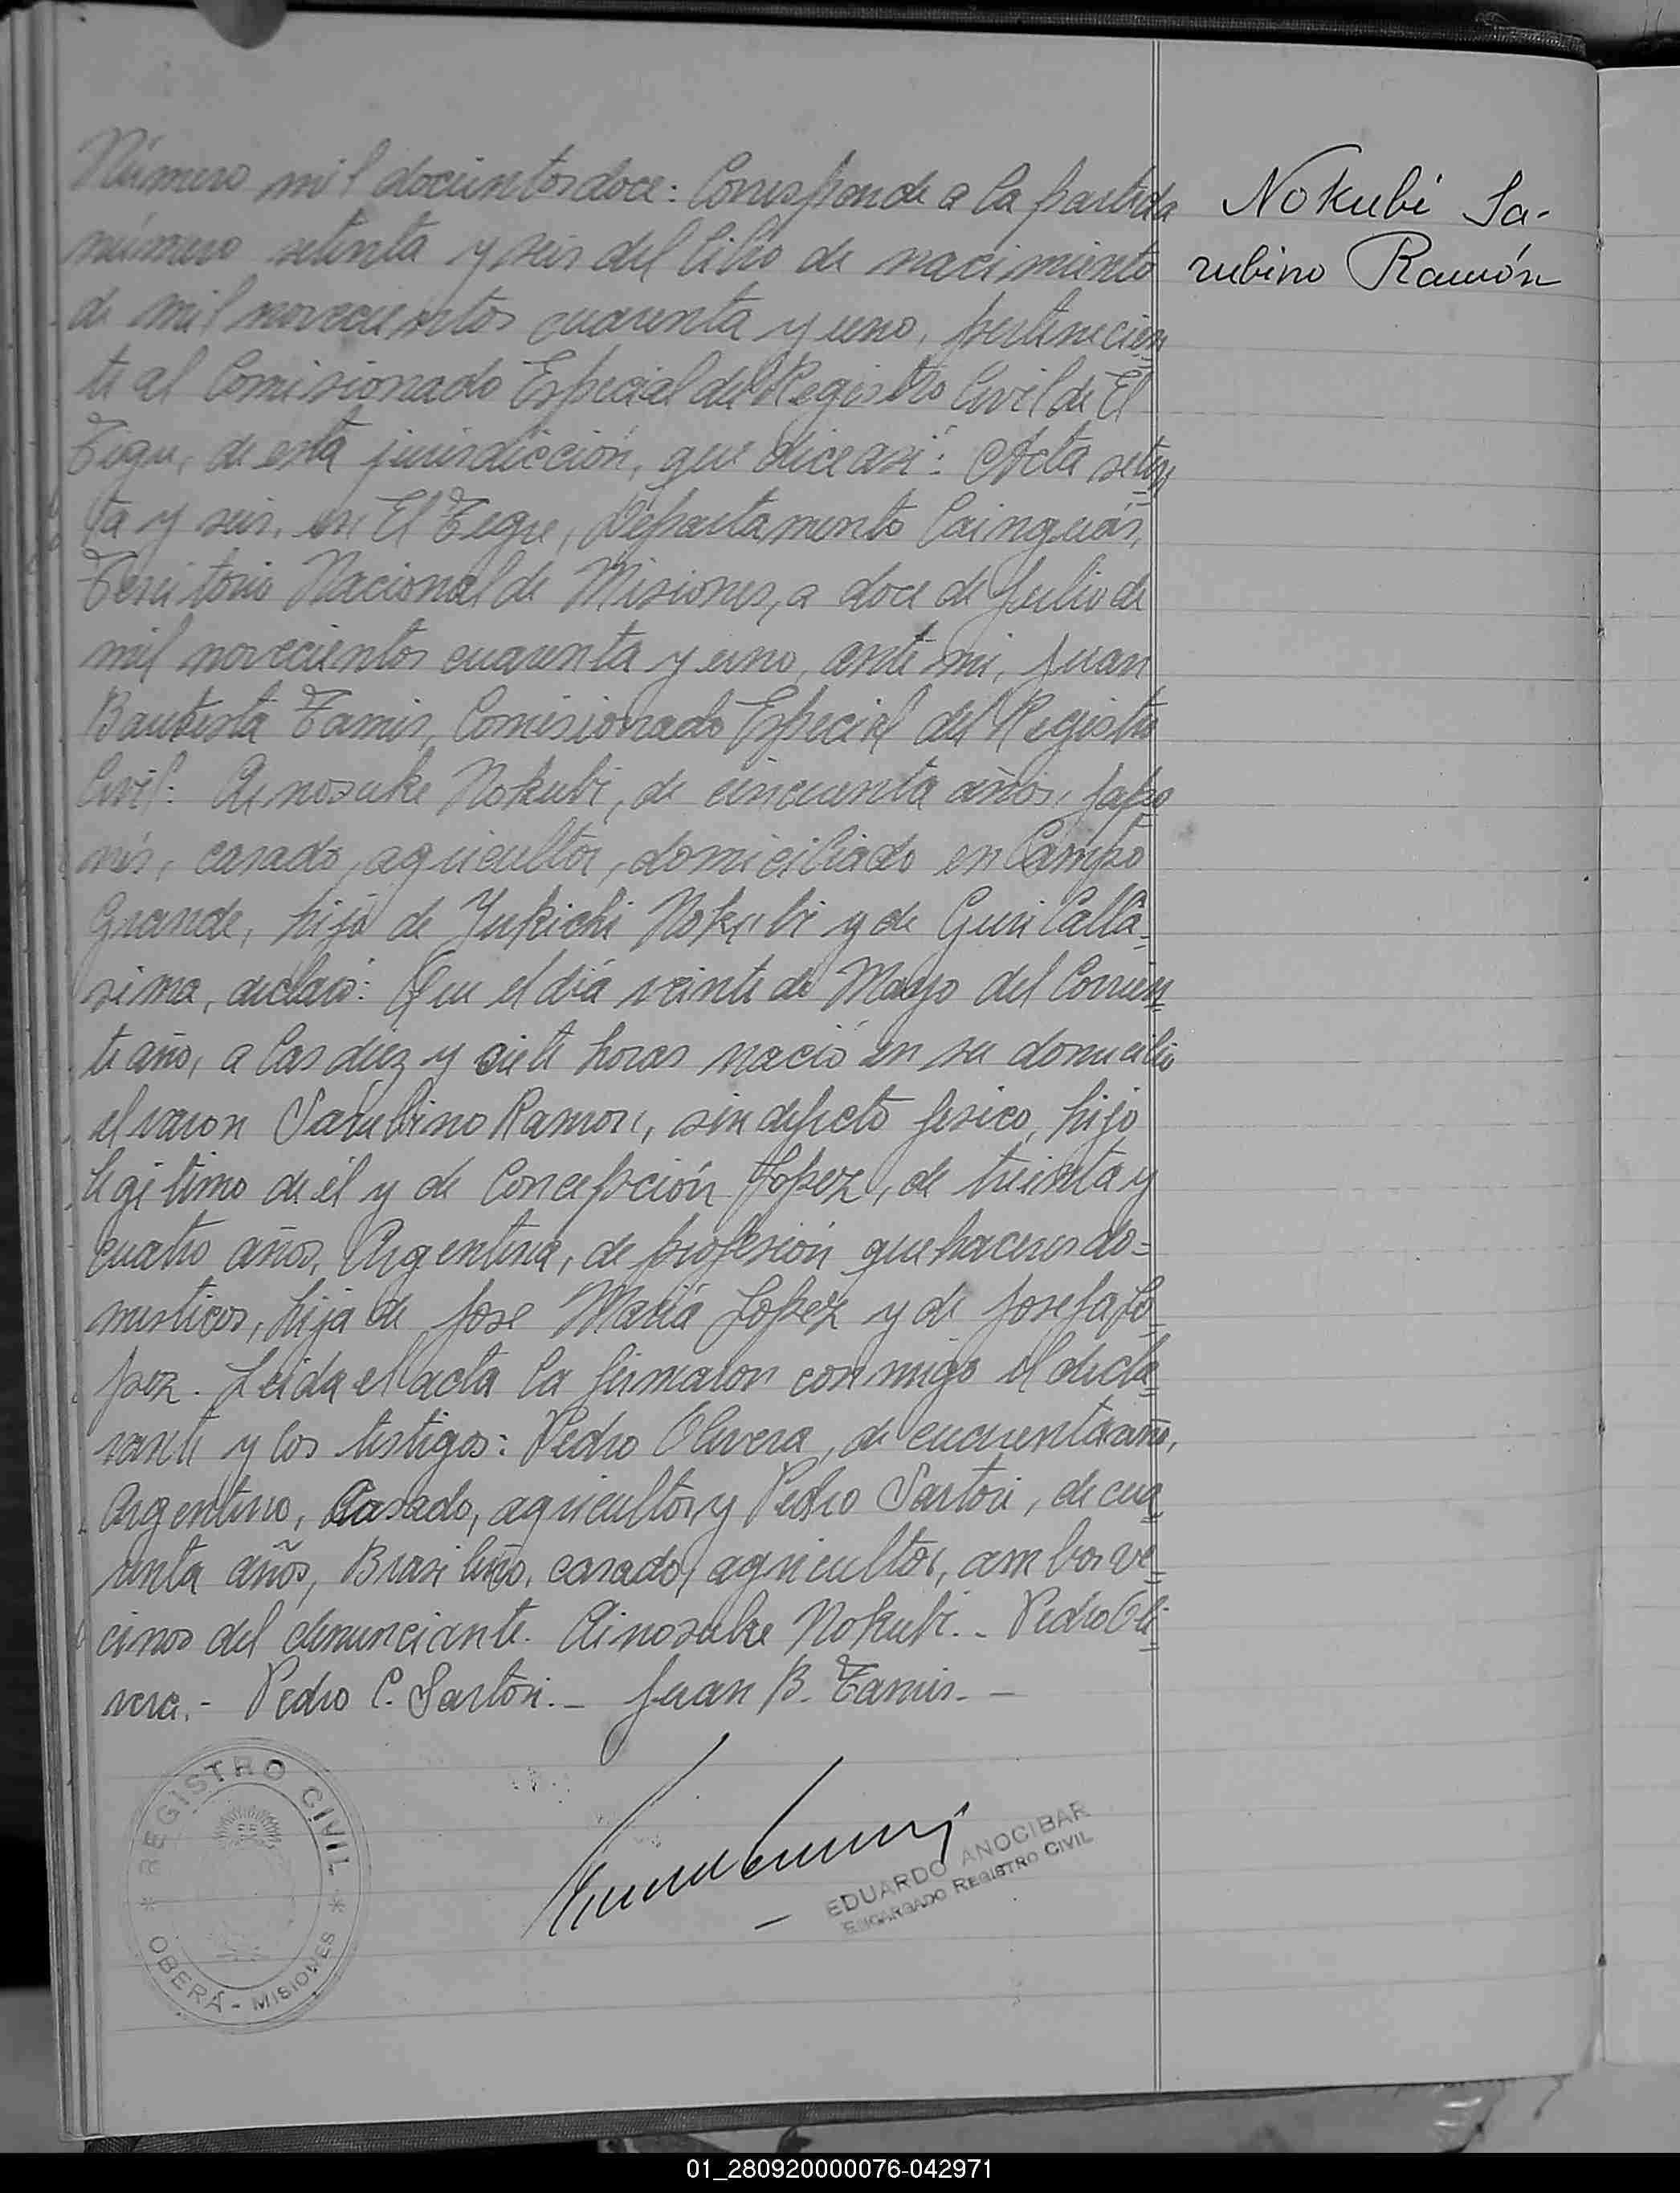 Número mil docientos doce: Corresponde a la partida
número setenta y seis del libro de nacimiento
de mil novecientos cuarenta y uno, pertinecien
te al Comisionado Especial del Registro Civil de El
Tigre, de esta jurisdicción, que dice asi: Acta seten
ta y seis, en El Tigre, Departamento Cainguás,
Territorio Nacional de Misiones, a doce de Julio de
mil novecientos cuarenta y uno, ante mi, Juan
Bautista Tamis, Comisionado Especial del Registro
Civil: Ainosuke Nokubi, de cincuenta años, japo
nés, casado, agricultor, domiciliado en Campo
Grande, hijo de Yukichi Nokubi y de Guri Calla-
sima, declaró: Que el día veinte de Mayo del Corrien
te año, a las diez y siete horas nació en su domicilio
el varon Sarubino Ramon, sin defecto fisico, hijo
legitimo de él y de Concepción Lopez, de treinta y
cuatro años, Argentina, de profesión quehaceres do-
mesticos, hija de Jose María Lopez y de Josefa Lo-
pez. Leida el acta la firmaron conmigo el decla-
rante y los testigos: Pedro Olivera, de cincuenta años,
Argentino, Casado, agricultor y Pedro Sartori, de cua
renta años, Brasileño, casado, agricultor, ambos ve-
cinos del denunciante. Ainosuke Nokubi.- Pedro Oli-
vera.- Pedro C. Sartori.- Juan B. Tamis.-
Nokubi Sa-
rubino Ramón
REGISTRO CIVIL
OBERÁ - MISIONES
EDUARDO ANOCIBAR
ENCARGADO REGISTRO CIVIL
01_280920000076-042971